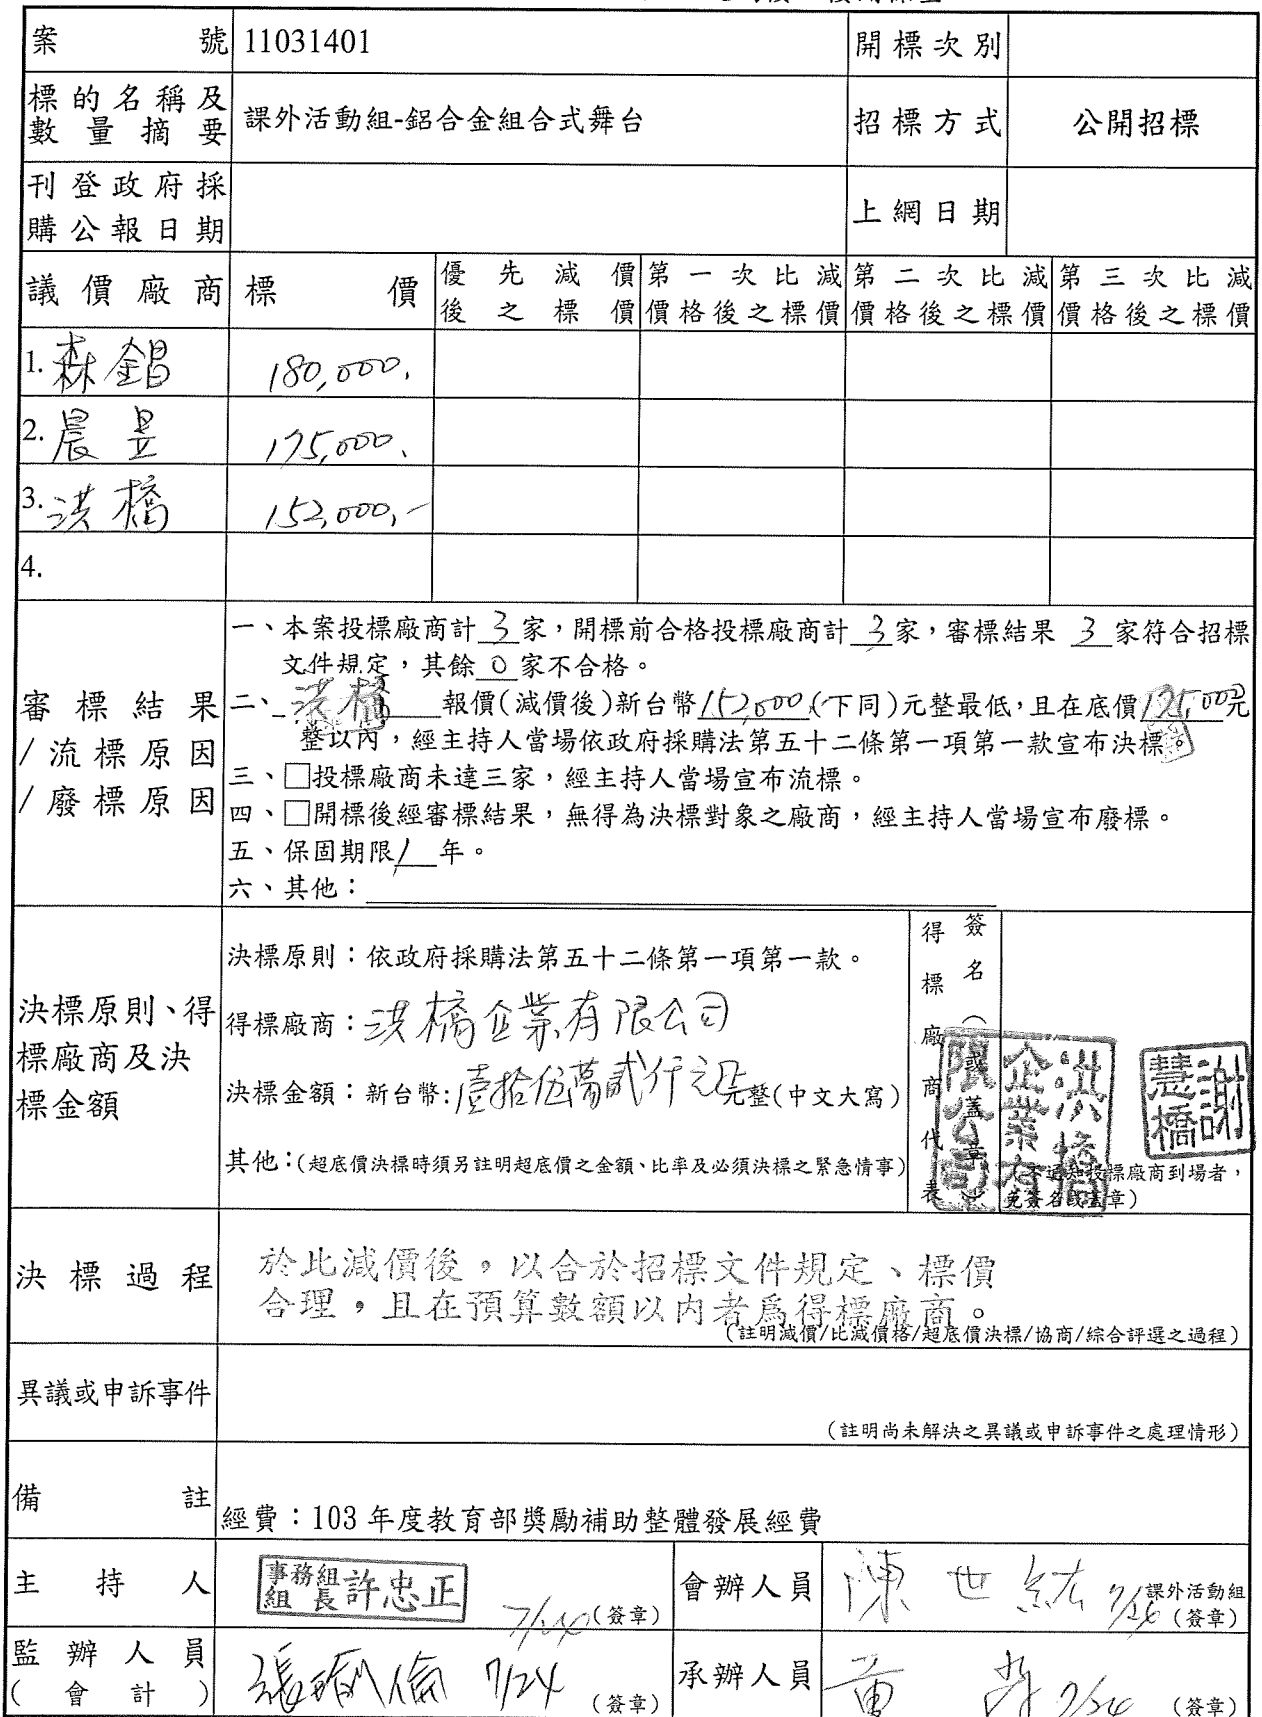 案號 11031401 開標次別
標的名稱及數量摘要 課外活動組-鋁合金組合式舞台 招標方式 公開招標
刊登政府採購公報日期 上網日期
議價廠商 標價 優先減價後之標價 第一次比減價格後之標價 第二次比減價格後之標價 第三次比減價格後之標價
1. 森錩 180,000.
2. 晨昱 175,000.
3. 洪橋 152,000,-
4.
審標結果/流標原因/廢標原因
一、本案投標廠商計 3 家,開標前合格投標廠商計 3 家,審標結果 3 家符合招標
文件規定,其餘 0 家不合格。
二、洪橋 報價(減價後)新台幣 152,000 (下同)元整最低,且在底價 175,000元
整以內,經主持人當場依政府採購法第五十二條第一項第一款宣布決標。
三、□投標廠商未達三家,經主持人當場宣布流標。
四、□開標後經審標結果,無得為決標對象之廠商,經主持人當場宣布廢標。
五、保固期限 1 年。
六、其他:
決標原則、得標廠商及決標金額
決標原則:依政府採購法第五十二條第一項第一款。
得標廠商:洪橋企業有限公司
決標金額:新台幣:壹拾伍萬貳仟元 元整(中文大寫)
其他:(超底價決標時須另註明超底價之金額、比率及必須決標之緊急情事)
得標廠商代表簽名(或蓋章)
洪橋企業有限公司
謝慧橋
(不通知投標廠商到場者,
免簽名或蓋章)
決標過程
於比減價後,以合於招標文件規定、標價
合理,且在預算數額以內者為得標廠商。
(註明減價/比減價格/超底價決標/協商/綜合評選之過程)
異議或申訴事件
(註明尚未解決之異議或申訴事件之處理情形)
備註 經費:103 年度教育部獎勵補助整體發展經費
主持人 事務組組長 許忠正 (簽章) 會辦人員 陳世紘 課外活動組 (簽章)
監辦人員(會計) 7/24 (簽章) 承辦人員 黃 (簽章)